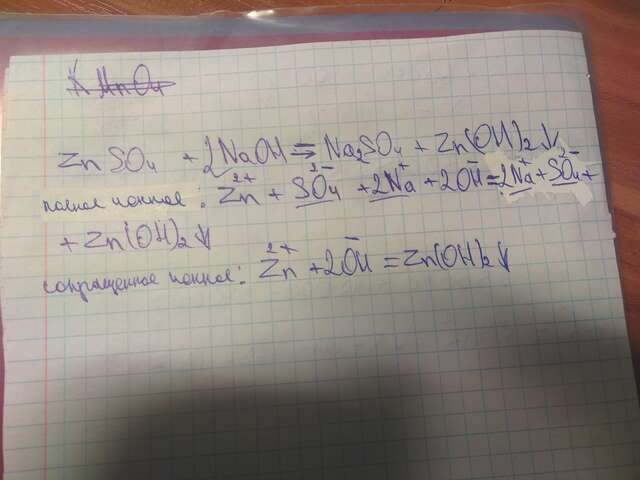 KMnO₄
ZnSO₄ + 2NaOH ⇒ Na₂SO₄ + Zn(OH)₂↓
полное ионное: Zn²⁺ + SO₄²⁻ + 2Na⁺ + 2OH⁻ = 2Na⁺ + SO₄²⁻ +
+ Zn(OH)₂↓
сокращенное ионное: Zn²⁺ + 2OH⁻ = Zn(OH)₂↓